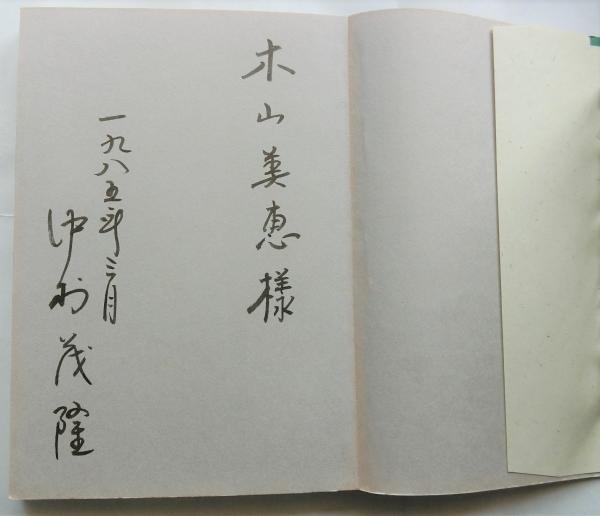 木山美恵様
一九八五年三月
沖村茂隆